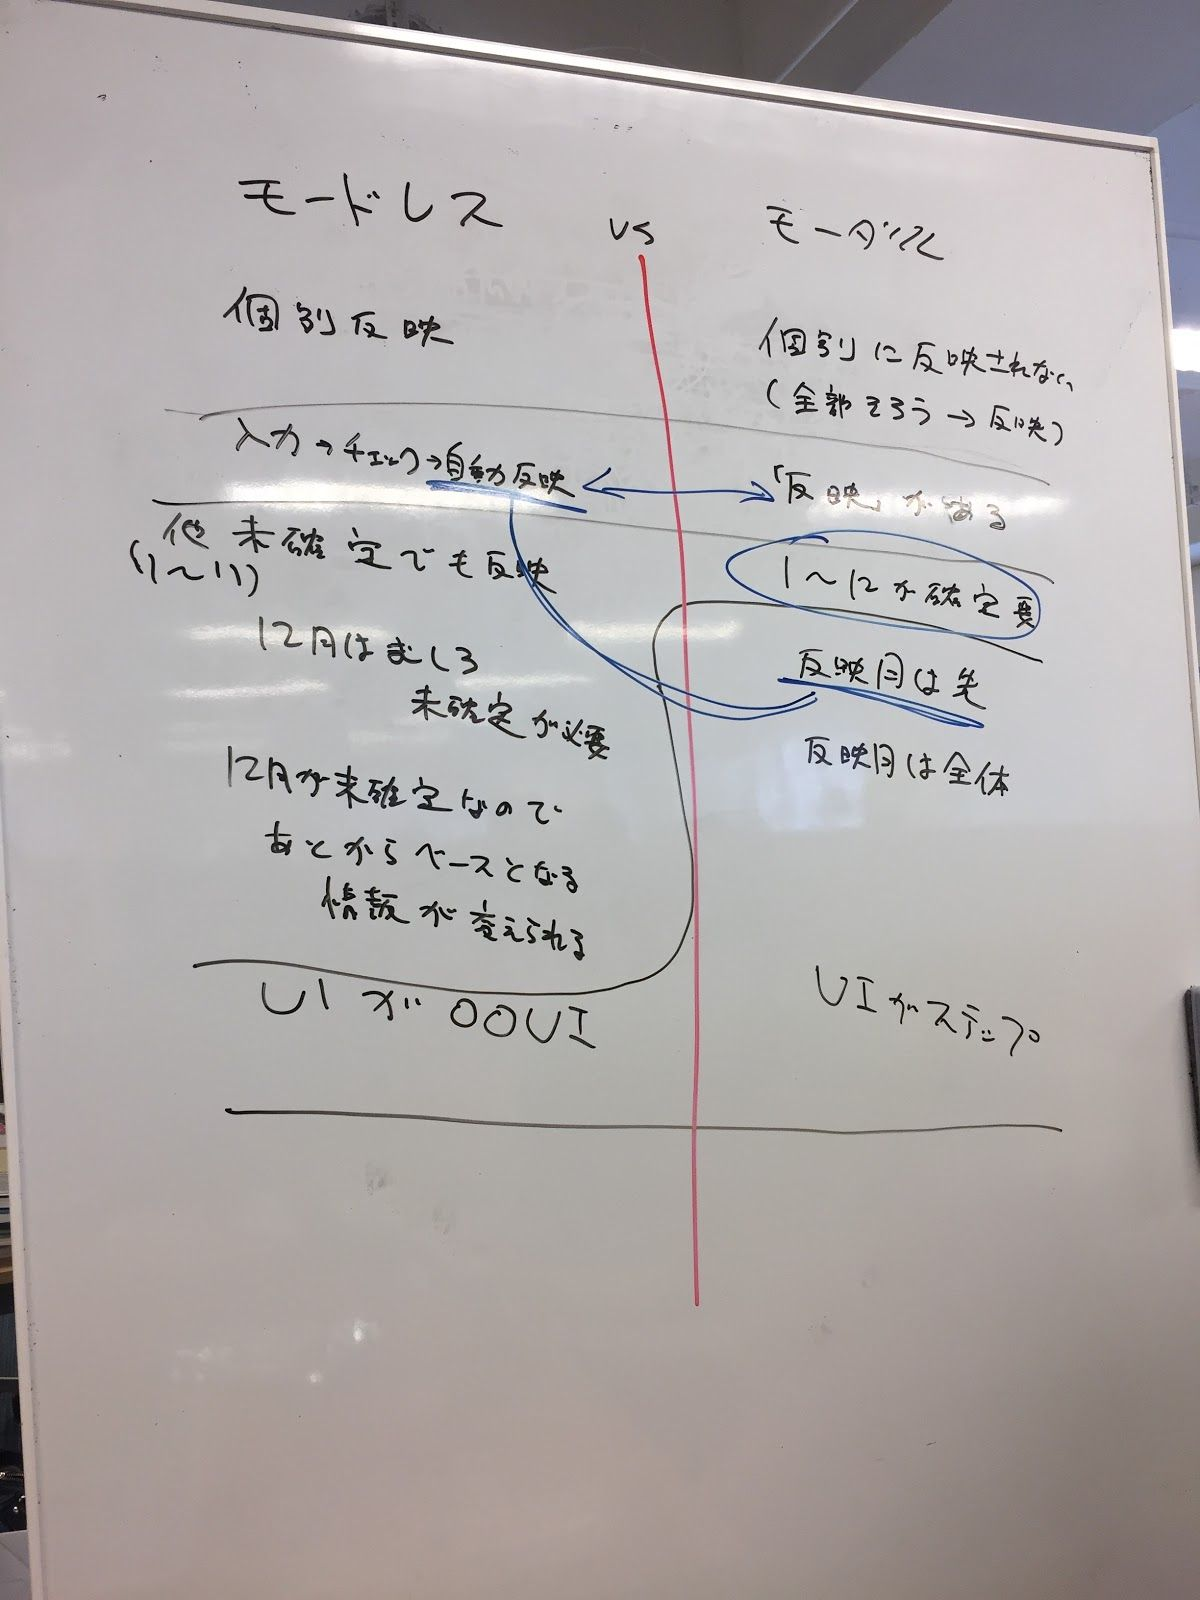 モードレス
vs
モーダル
個別反映
個別に反映されない
(全部そろう→反映)
入力→チェック→自動反映
「反映」がある
他未確定でも反映
(1〜11)
1〜12が確定要
12月はむしろ
未確定が必要
反映月は先
反映月は全体
12月が未確定なので
あとからベースとなる
情報が変えられる
UIがOOUI
UIがステップ